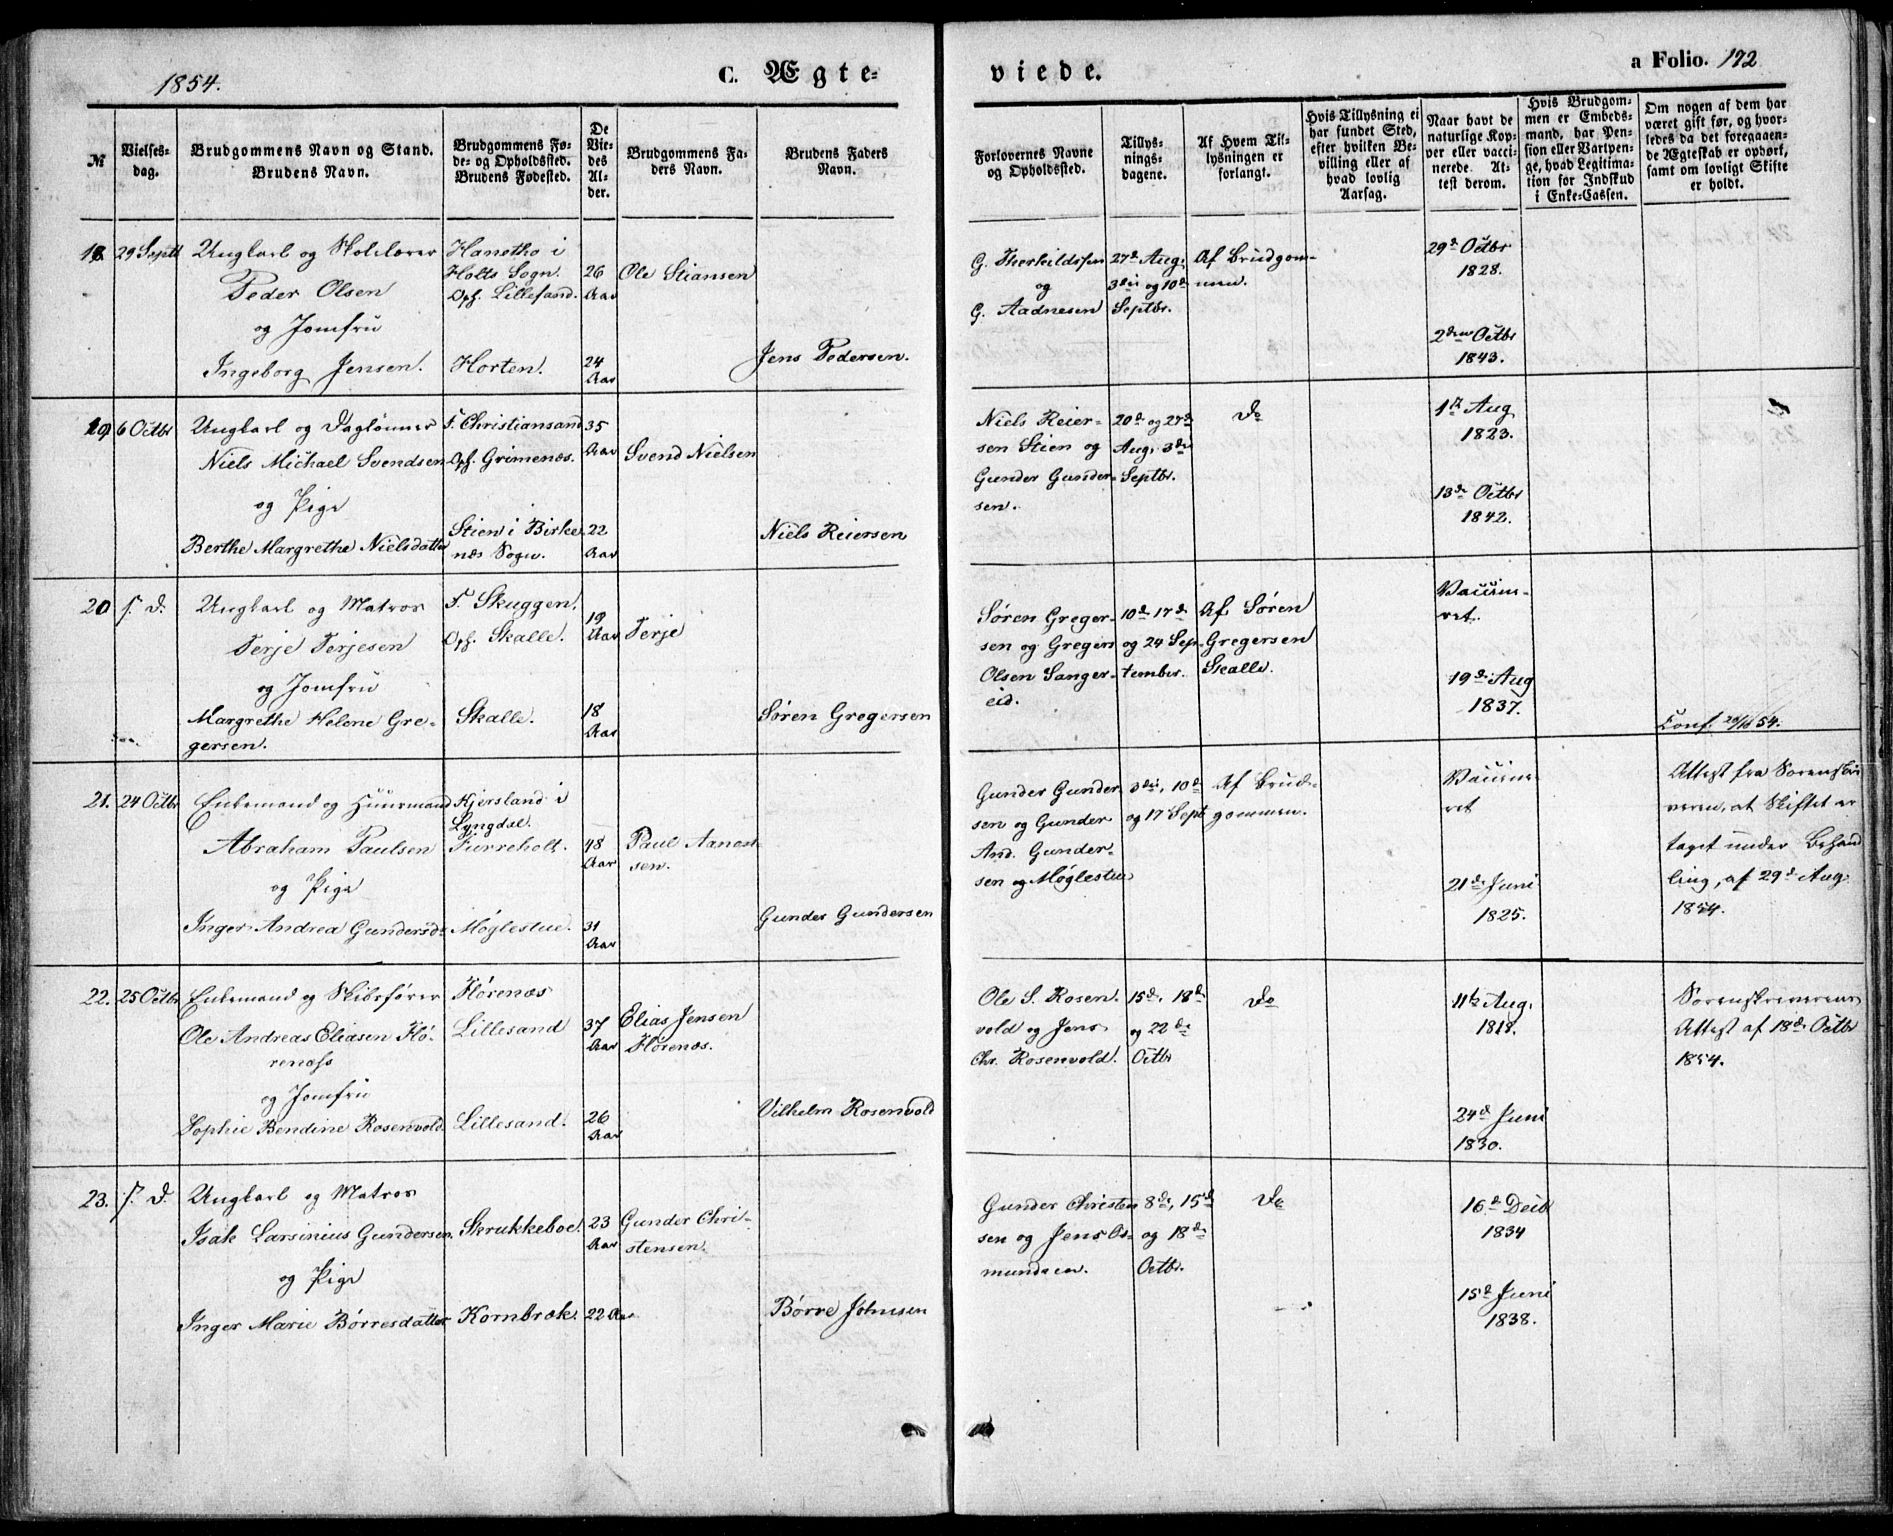 1854.
C. Ægte-
viede.
a Folio. 172
№
Vielses-
dag.
Brudgommens Navn og Stand.
Brudens Navn.
Brudgommens Fø-
de- og Opholdssted.
Brudens Fødested.
De
Vie-
des
Al-
der.
Brudgommens Fa-
ders Navn.
Brudens Faders
Navn.
Forlovernes Navne
og Opholdssted.
Tillys-
nings-
dagene.
Af Hvem Til-
lysningen er
forlangt.
Hvis Tillysning ei
har fundet Sted,
efter hvilken Be-
villing eller af
hvad lovlig
Aarsag.
Naar havt de
naturlige Kop-
per eller vacci-
nerede. At-
test derom.
Hvis Brudgom-
men er Embeds-
mand, har Pen-
sion eller Vartpen-
ge, hvad Legitima-
tion for Indskud
i Enke-Cassen.
Om nogen af dem har
været gift før, og hvor-
ledes da det foregaaen-
de Ægteskab er ophørt,
samt om lovligt Skifte
er holdt.
18. 29 Septb
Ungkarl og Skolelærer
Peder Olsen
og Jomfru
Ingeborg Jensen.
Hanetho i
Holts Sogn.
Oph. Lillesand.
Horten.
26
Aar
24
Aar
Ole Stiansen
Jens Pedersen.
G. Therkildssen
og
G. Aadnesen
27de Aug,
3die og 10de
Septbr.
Af Brudgom-
men.
29de Octbr
1828.
2den Octbr
1843.
19 6 Octbr
Ungkarl og Daglønner
Niels Michael Svendsen
og Pige
Berthe Margrethe Nielsdatter
F. Christiansand
Oph. Grimenæs.
Stien i Birke
næs Sogn.
35
Aar
22
Aar
Svend Nielsen
Niels Reiersen
Niels Reier-
sen Stien og
Gunder Gunder-
sen.
20de og 27de
Aug, 3die
Septbr.
Do
1te Aug
1823.
13de Octbr
1842.
20 s. D.
Ungkarl og Matros
Terje Terjesen
og Jomfru
Margrethe Helene Gre-
gersen.
F. Skuggen.
Oph. Skalle.
Skalle.
19
Aar
18
Aar
Terje
Søren Gregersen
Søren Greger-
sen og Gregers
Olsen Sanger-
eid.
10de 17de
og 24 Sep-
tember.
Af Søren
Gregersen
Skalle.
Vaccine-
ret.
19de Aug
1837.
21. 24 Octbr
Enkemand og Huusmand
Abraham Paulsen
og Pige
Inger Andrea Gundersd.
Kjersland i
Lyngdal.
Furreholt.
Møglestue.
48
Aar
31
Aar
Paul Aanent-
sen.
Gunder Gundersen
Gunder Gunder-
sen og Gunder
And. Gunder-
sen og Møglestue
3die, 10de
og 17 Sept
Af Brud-
gommen.
Vaccine-
ret
21de Juni
1825.
Conf. 54.
Attest fra Sorenskri
veren, at Skiftet er
taget under Behand
ling, af 29de Aug
1854.
22. 25 Octbr
Enkemand og Skibsfører
Ole Andreas Eliasen Hø-
renæss
og Jomfru
Sophie Bendine Rosenvold
Hørenæs
Lillesand
Lillesand.
37
Aar
26
Aar
Elias Jensen
Hørenæs.
Vilhelm Rosenvold
Ole S. Rosen-
vold og Jens
Chr. Rosenvold.
15de, 18de
og 22de
Octbr
Do
11te Aug,
1818.
24de Juni
1830.
Sorenskriverens
Attest af 18de Octbr
1854.
23. s. D.
Ungkarl og Matros
Isak Larsinius Gundersen
og Pige
Inger Marie Børresdatter
Skrukkeboe.
Kornbræk.
23
Aar
22 Aar
Gunder Chri-
stensen.
Børre Johnsen
Gunder Christen
sen og Jens Os-
mundsen.
8de, 15de
og 18de
Octbr.
Do
16de Decb
1834
15de Juni
1838.